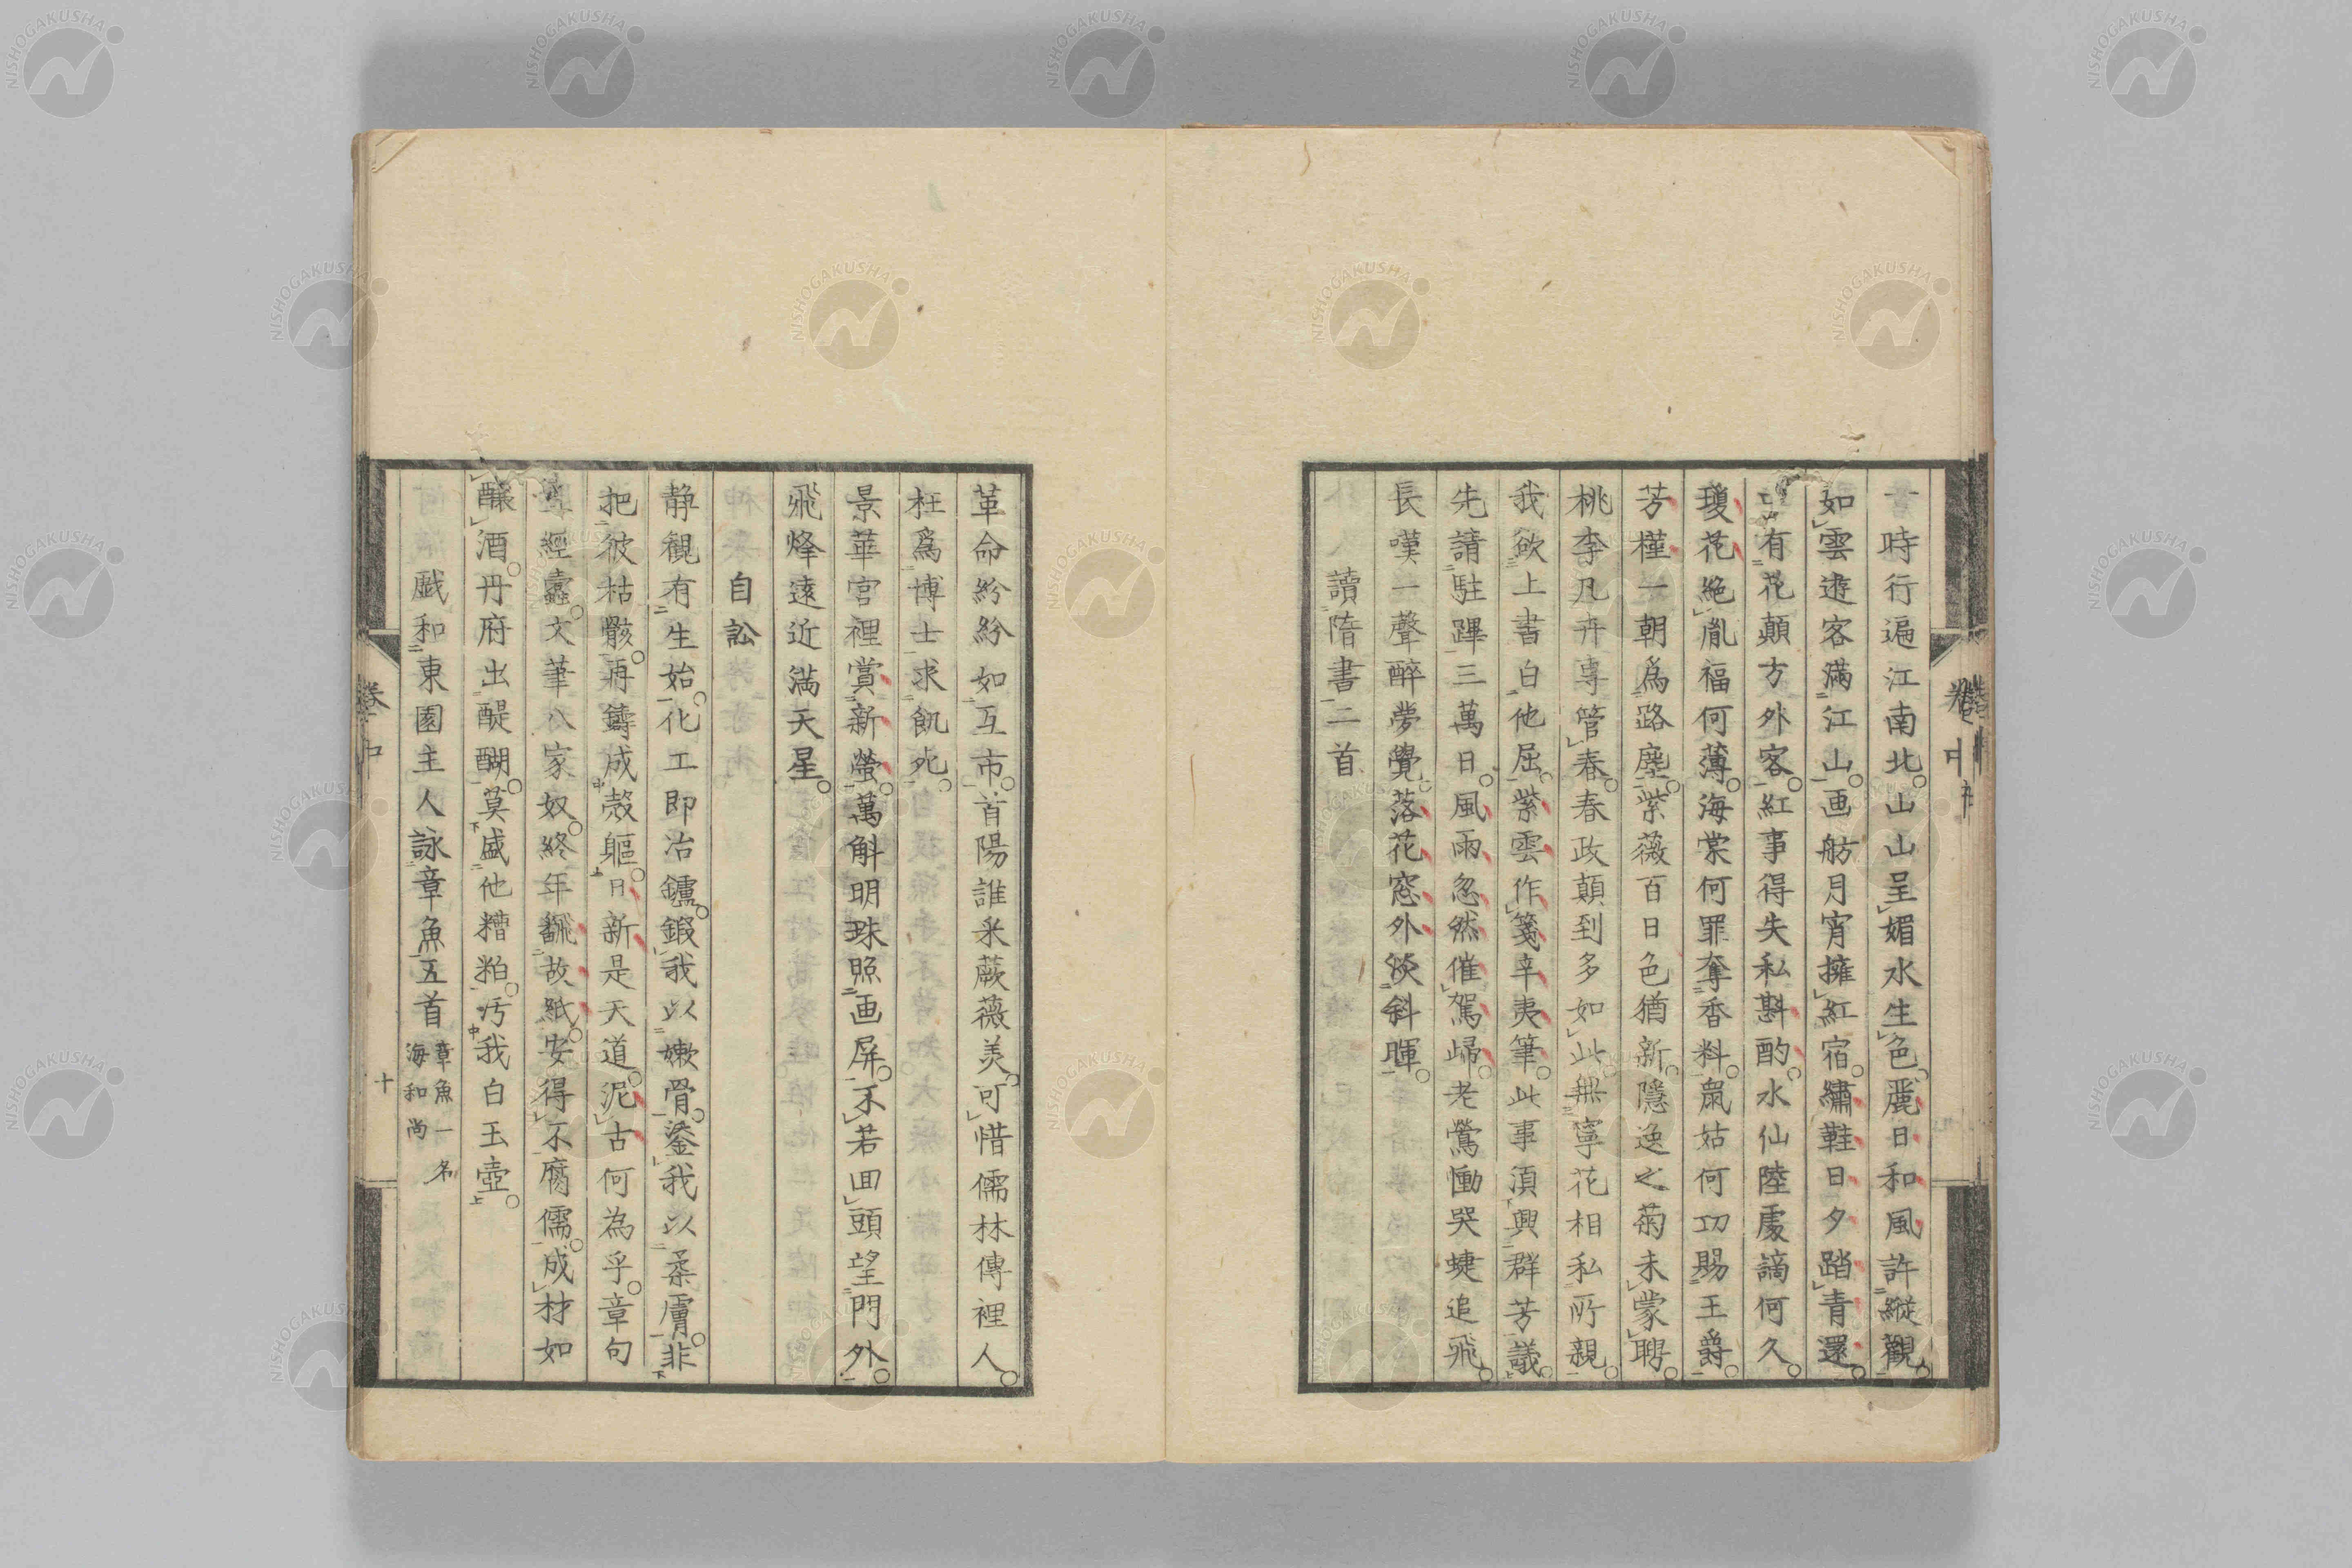 時行遍江南北山山呈媚水生色麗日和風許縱觀
如雲遊客滿江山画舫月宵擁紅宿繡鞋日夕踏青還
有花顛方外客紅事得失私斟酌水仙陸處謫何久
瓊花絶胤福何薄海棠何罪奪香料鼠姑何功賜王爵
芳槿一朝爲路塵紫薇百日色猶新隱逸之菊未蒙聘
桃李凡卉專管春春政顛到多如此無寧花相私所親
我欲上書白他屈紫雲作箋辛夷筆此事須興群芳議
先請駐蹕三萬日風雨忽然催駕歸老鶯慟哭蜨追飛
長嘆一聲醉夢覺落花窓外淡斜暉
讀隋書二首
革命紛紛如互市首陽誰采蕨薇羙可惜儒林傳裡人
枉爲博士求飢死
景華宮裡賞新螢萬斛明珠照画屏不若回頭望門外
飛烽遠近滿天星
自訟
静観有生始化工即冶鑪鍛我以嫩骨鋈我以柔膚非
把彼枯骸再鑄成殼軀日新是天道泥古何為乎章句
經蠹文筆八家奴終年飜故紙安得不腐儒成材如
釀酒丹府出醍醐莫盛他糟粕汚我白玉壺
戯和東園主人詠章魚五首 章魚一名海和尚
卷中
十
NISHOGAKUSHA